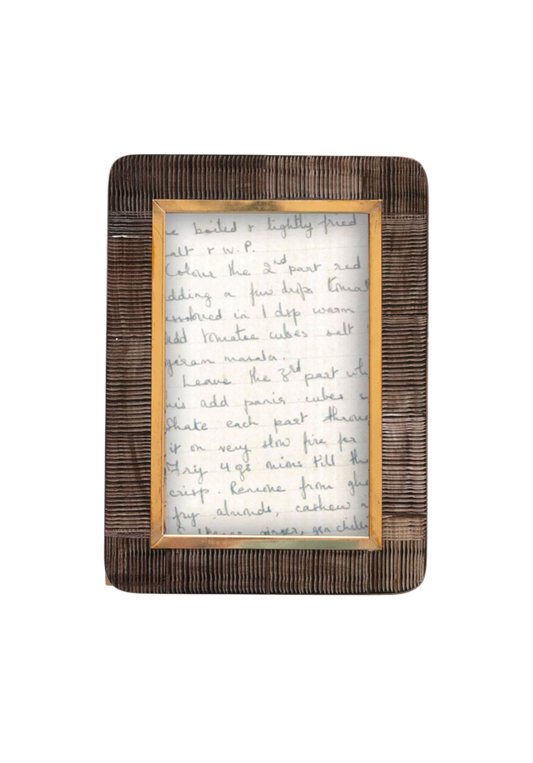 e boiled & lightly fried
alt & w.P.
Colour the 2nd part red
dding a few drops tomat
ssolved in 1 dsp warm
dd tomatoe cubes salt
garam masala.
Leave the 3rd part wh
his add panir cubes
Shake each part throu
it on very slow fire for
Fry 4 gs onions till th
crisp. Remove from ghe
fry almonds, cashew
ginger, grn chilie